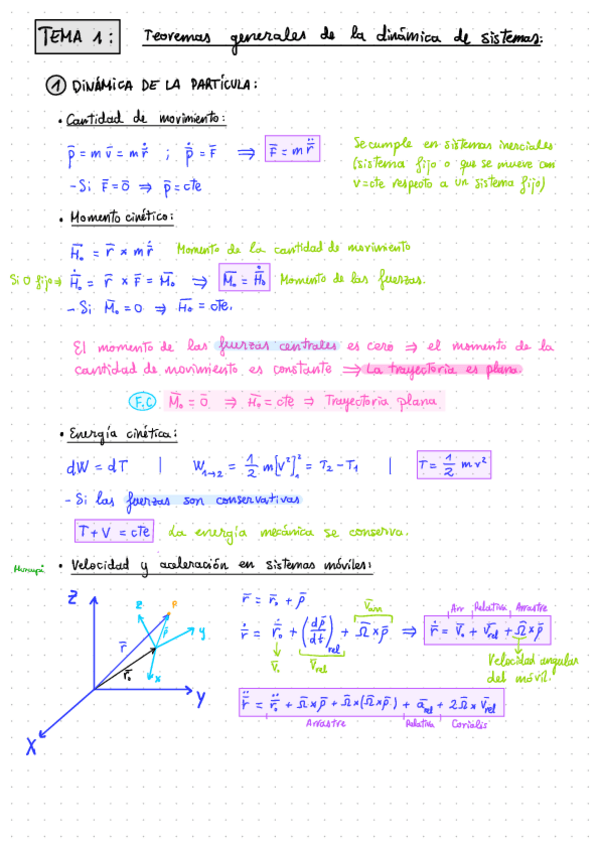 TEMA 1: Teoremas generales de la dinámica de sistemas:
1 DINÁMICA DE LA PARTÍCULA:
• Cantidad de movimiento:
p̄ = m v̄ = m ṙ̄ ; ṗ̄ = F̄ ⇒ F̄ = m r̈̄
Se cumple en sistemas inerciales
(sistema fijo o que se mueve con
v=cte respecto a un sistema fijo)
- Si F̄ = 0̄ ⇒ p̄ = cte
• Momento cinético:
H̄₀ = r̄ × m ṙ̄ Momento de la cantidad de movimiento
Si O fijo ⇒ Ḣ̄₀ = r̄ × F̄ = M̄₀ ⇒ M̄₀ = Ḣ̄₀ Momento de las fuerzas.
- Si M̄₀ = 0 ⇒ H̄₀ = cte.
El momento de las fuerzas centrales es cero ⇒ el momento de la
cantidad de movimiento es constante ⇒ La trayectoria es plana
F.C M̄₀ = 0̄ ⇒ H̄₀ = cte ⇒ Trayectoria plana
• Energía cinética:
dW = dT | W₁→₂ = 1/2 m[v²]₁² = T₂ - T₁ | T = 1/2 mv²
- Si las fuerzas son conservativas
T + V = cte La energía mecánica se conserva.
• Velocidad y aceleración en sistemas móviles:
Z
z
P
y
x
r̄
ρ̄
r̄₀
Y
X
r̄ = r̄₀ + ρ̄
ṙ̄ = ṙ̄₀ + (dρ̄/dt)rel + Ω̄ × ρ̄ ⇒ ṙ̄ = V̄₀ + V̄rel + Ω̄ × ρ̄
V̄₀ V̄rel
Arr Relativa Arrastre
Velocidad angular
del móvil.
r̈̄ = r̈̄₀ + Ω̄̇ × ρ̄ + Ω̄ × (Ω̄ × ρ̄) + ārel + 2Ω̄ × V̄rel
Arrastre Relativa Coriolis